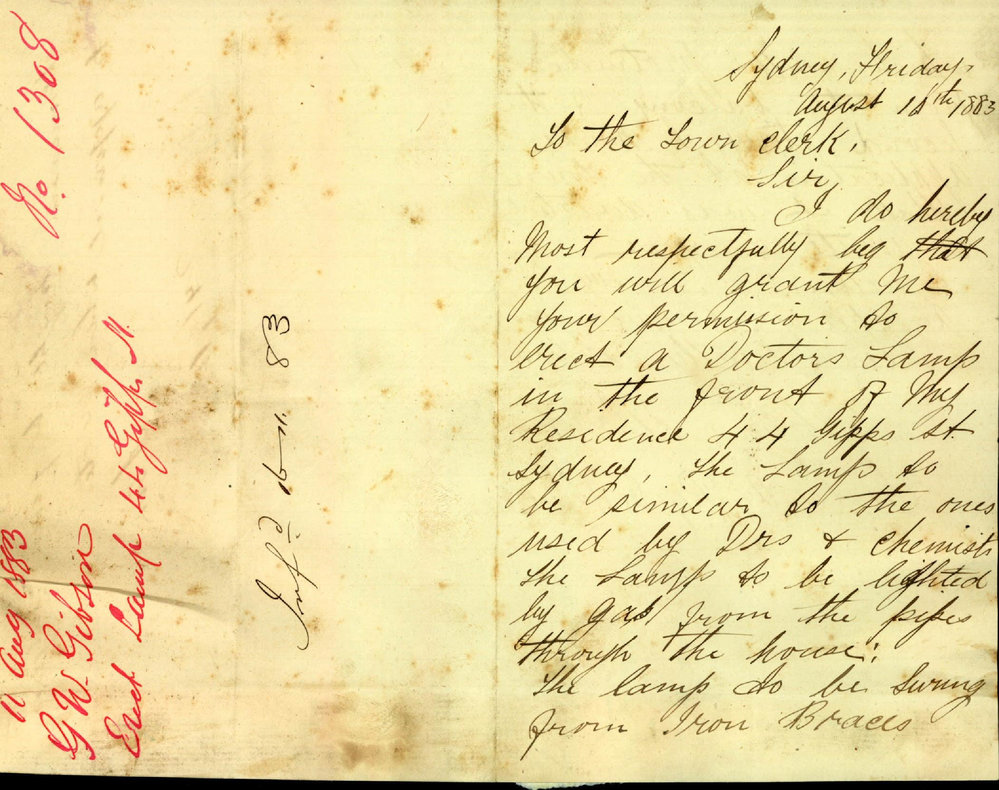 No. 1308
11 Aug 1883
G W Gibson
Erect Lamp 44 Gipps St.
Infd
83
Sydney, Friday,
August 10th 1883
To the Town Clerk.
Sir,
I do hereby
Most respectfully beg that
you will grant Me
your permission to
erect a Doctors Lamp
in the front of My
Residence 44 Gipps St.
Sydney, The Lamp to
be similar to the ones
used by Drs & Chemists
The Lamp to be lighted
by gas from the pipes
through the house.
The lamp to be swung
from Iron Braces